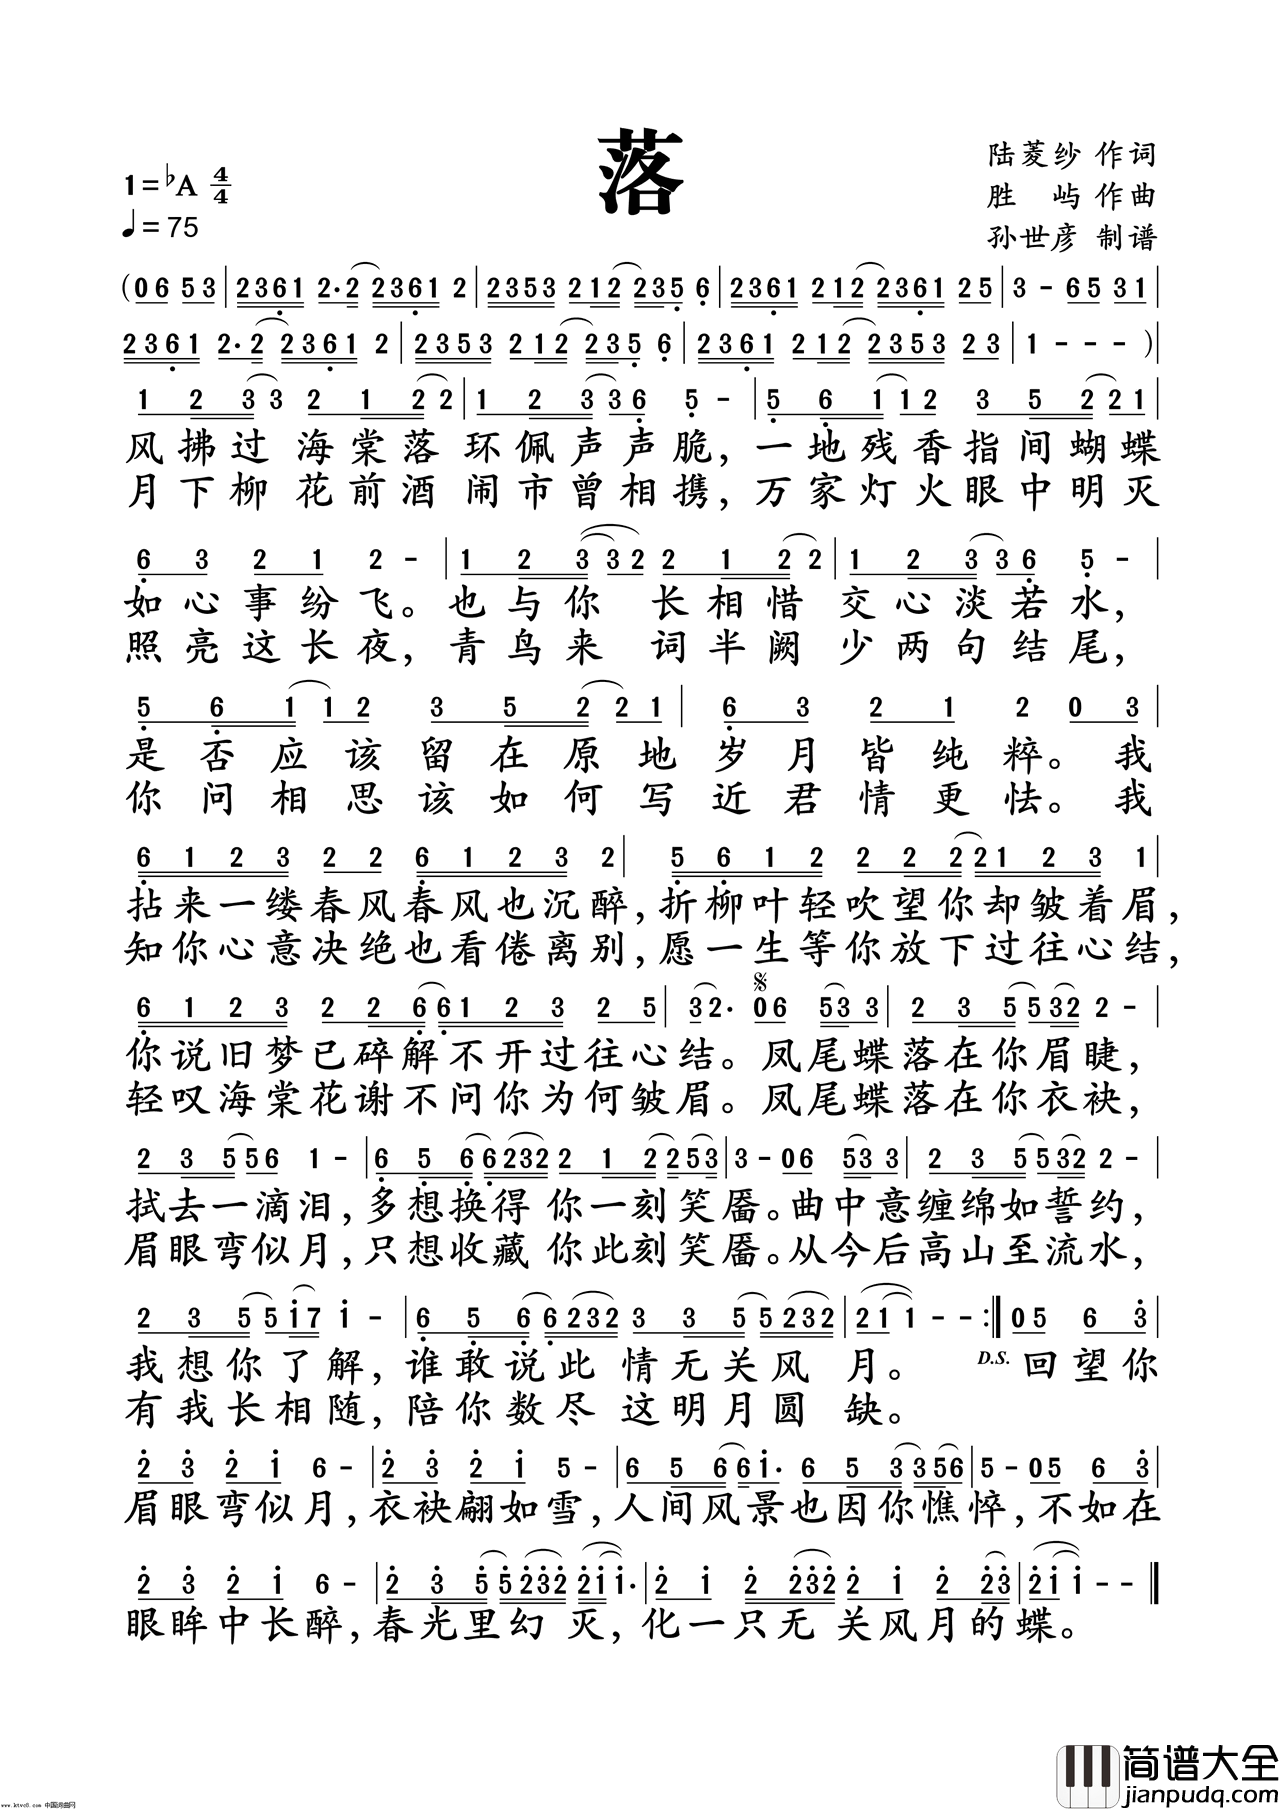 落
陆菱纱 作词
胜 屿 作曲
孙世彦 制谱
1=♭A 4/4
♩=75
(0 6 5 3 | 2 3 6 1 2·2 2 3 6 1 2 | 2 3 5 3 2 1 2 2 3 5 6 | 2 3 6 1 2 1 2 2 3 6 1 2 5 | 3 - 6 5 3 1 |
2 3 6 1 2·2 2 3 6 1 2 | 2 3 5 3 2 1 2 2 3 5 6 | 2 3 6 1 2 1 2 2 3 5 3 2 3 | 1 - - - ) |
1 2 3 3 2 1 2 2 | 1 2 3 3 6 5 - | 5 6 1 1 2 3 5 2 2 1 |
风拂过 海棠落 环佩声声脆，一地残香指间蝴蝶
月下柳 花前酒 闹市曾相携，万家灯火眼中明灭
6 3 2 1 2 - | 1 2 3 3 2 2 1 2 2 | 1 2 3 3 6 5 - |
如心事纷飞。也与你 长相惜 交心淡若水，
照亮这长夜，青鸟来 词半阙 少两句结尾，
5 6 1 1 2 3 5 2 2 1 | 6 3 2 1 2 0 3 |
是否应该留在原地岁月皆纯粹。我
你问相思该如何写近君情更怯。我
6 1 2 3 2 2 6 1 2 3 2 | 5 6 1 2 2 2 2 2 1 2 3 1 |
拈来一缕春风春风也沉醉，折柳叶轻吹望你却皱着眉，
知你心意决绝也看倦离别，愿一生等你放下过往心结，
6 1 2 3 2 2 6 6 1 2 3 2 5 | 3 2· 0 6 5 3 3 | 2 3 5 5 3 2 2 - |
你说旧梦已碎解不开过往心结。凤尾蝶落在你眉睫，
轻叹海棠花谢不问你为何皱眉。凤尾蝶落在你衣袂，
2 3 5 5 5 6 1 - | 6 5 6 6 2 3 2 2 1 2 2 5 3 | 3 - 0 6 5 3 3 | 2 3 5 5 3 2 2 - |
拭去一滴泪，多想换得 你一刻笑靥。曲中意缠绵如誓约，
眉眼弯似月，只想收藏 你此刻笑靥。从今后高山至流水，
2 3 5 5 1 7 1 - | 6 5 6 6 2 3 2 3 3 5 5 2 3 2 | 2 1 1 - - :‖ 0 5 6 3 |
我想你了解，谁敢说此 情无关风 月。 D.S. 回望你
有我长相随，陪你数尽 这明月圆 缺。
2 3 2 1 6 - | 2 3 2 1 5 - | 6 5 6 6 1· 6 5 3 3 5 6 | 5 - 0 5 6 3 |
眉眼弯似月，衣袂翩如雪，人间风景也因你憔悴，不如在
2 3 2 1 6 - | 2 3 5 5 2 3 2 2 1 1· | 2 1 2 2 3 2 2 1 2 2 3 | 2 1 1 - - ‖
眼眸中长醉，春光里幻 灭，化一只无 关风月的蝶。
简谱大全
jianpudq.com
www.ktvc8.com 中国词曲网